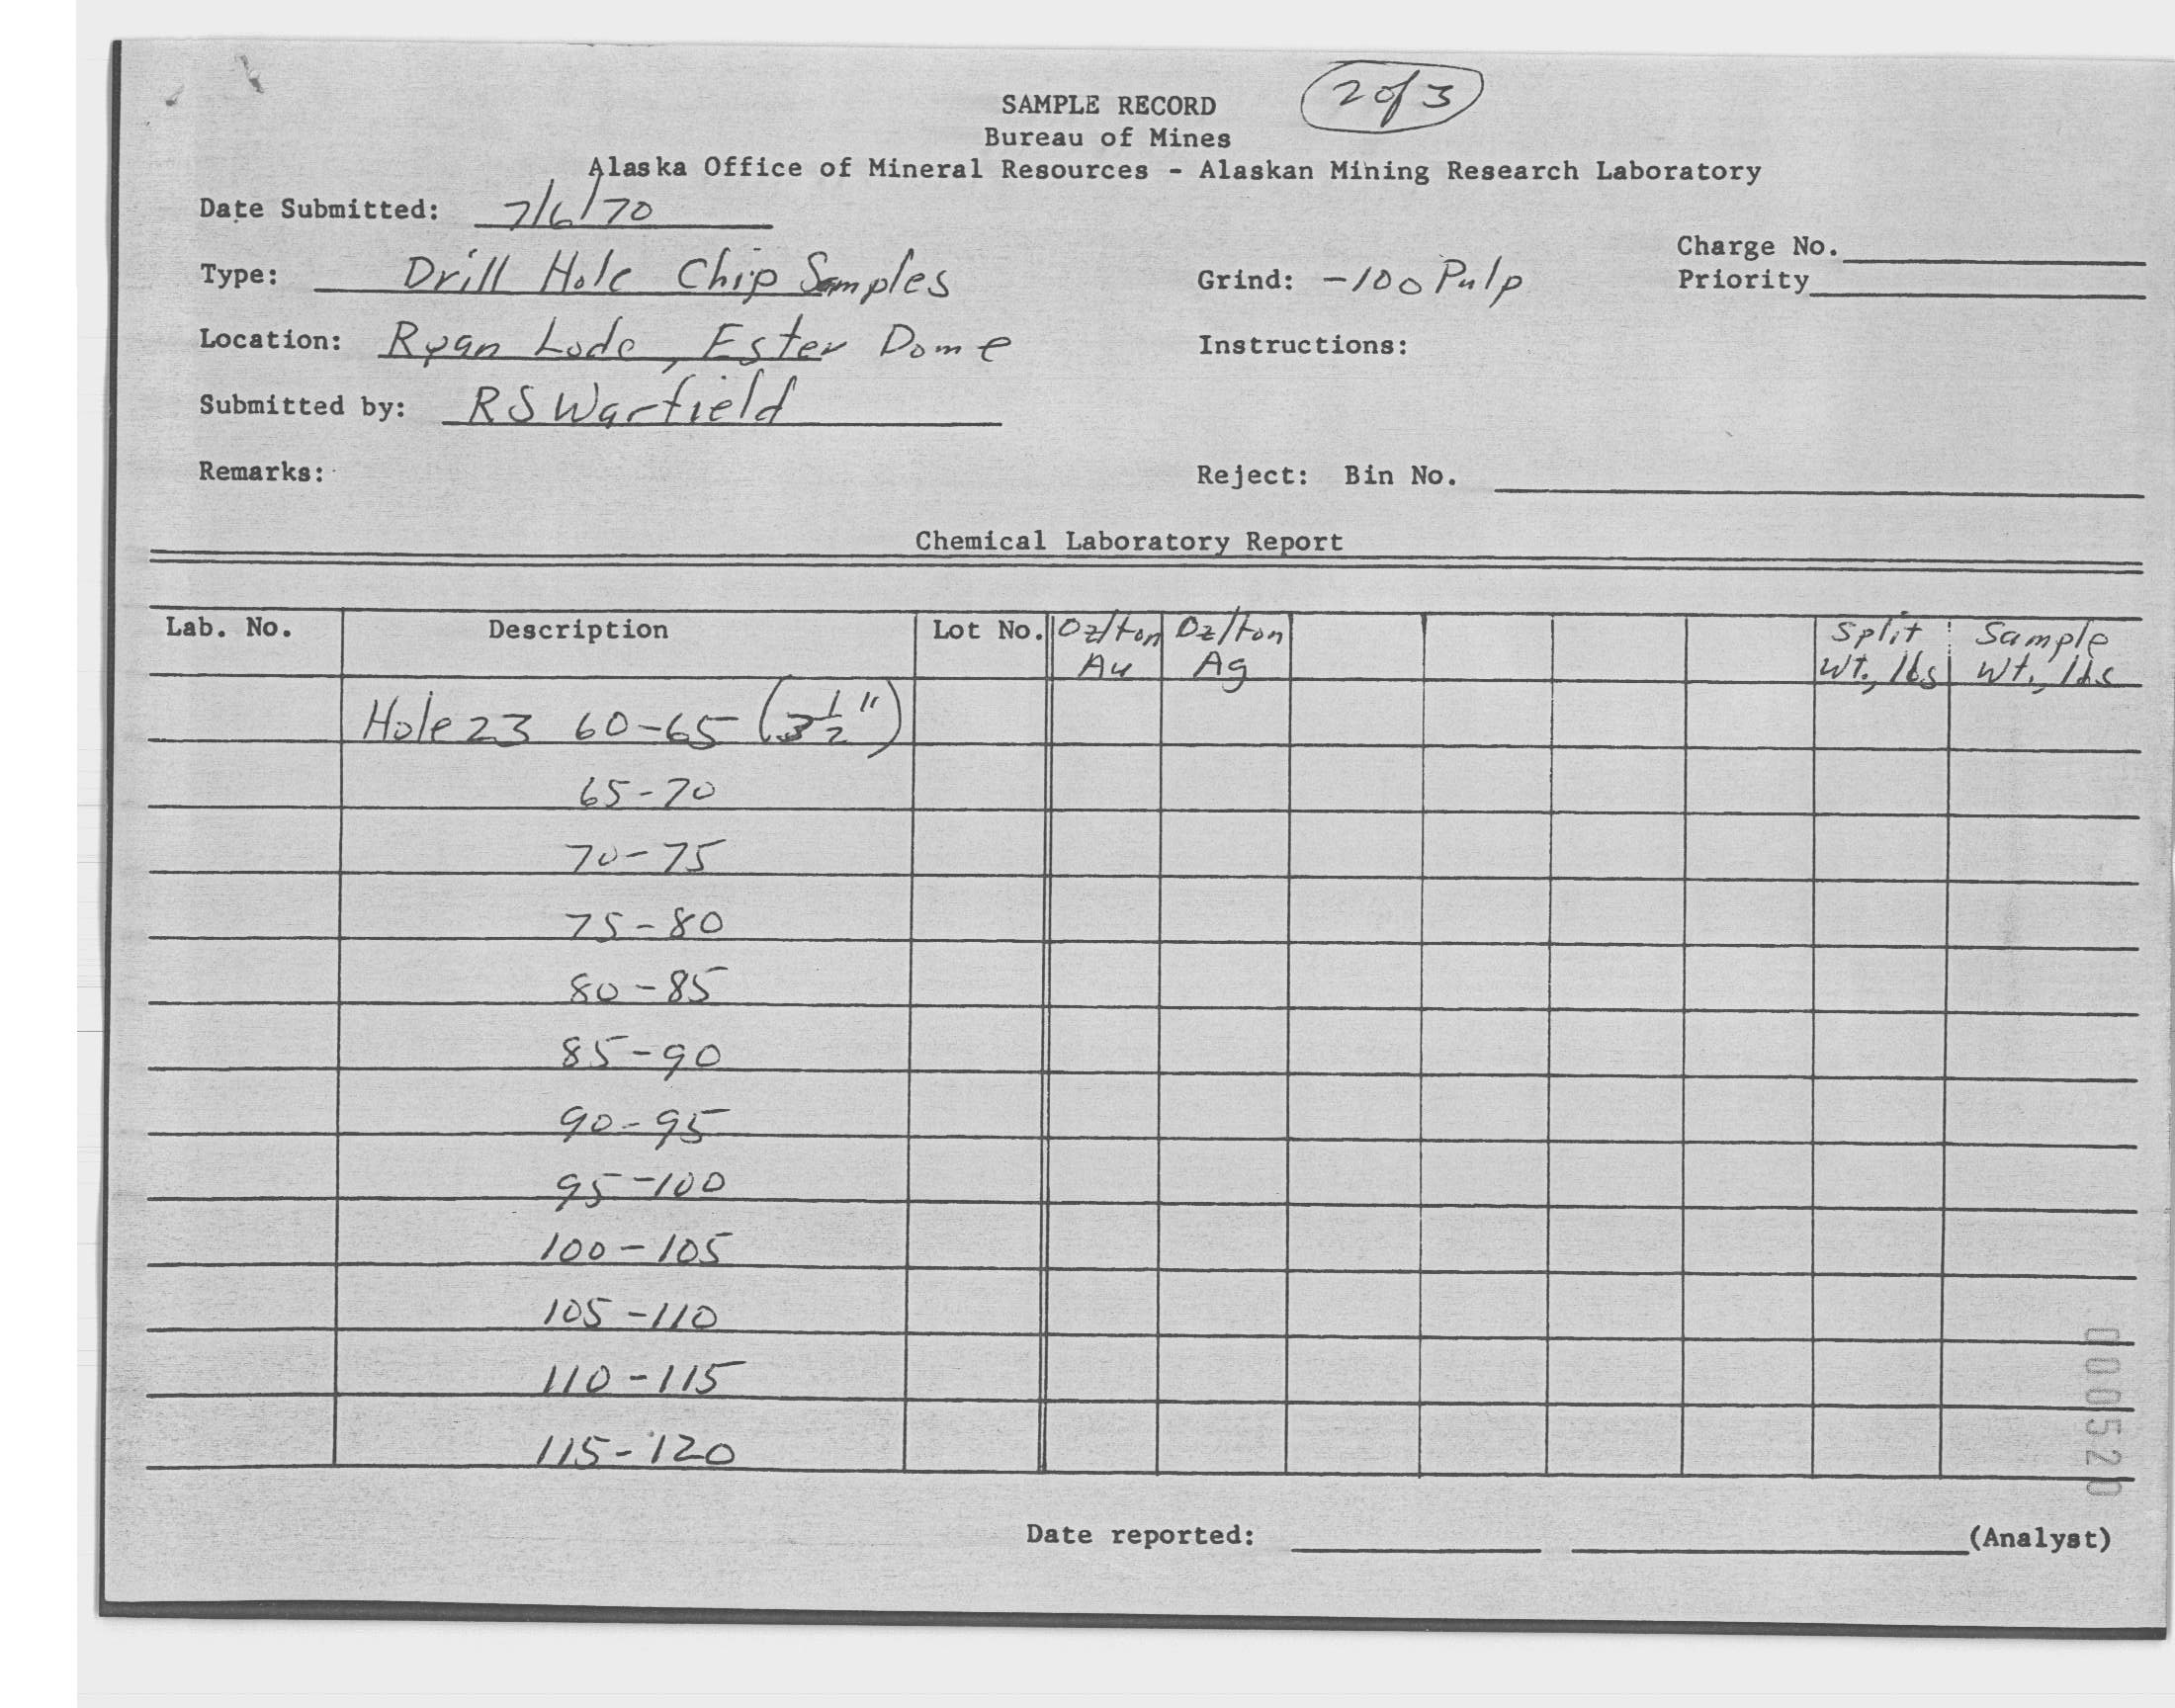 2 of 3
SAMPLE RECORD
Bureau of Mines
Alaska Office of Mineral Resources - Alaskan Mining Research Laboratory
Date Submitted: 7/6/70
Charge No.
Type: Drill Hole Chip Samples
Grind: -100 Pulp
Priority
Location: Ryan Lode, Ester Dome
Instructions:
Submitted by: RS Warfield
Remarks:
Reject: Bin No.
Chemical Laboratory Report
Lab. No. Description Lot No. Oz/ton Au Oz/ton Ag Split Wt., lbs Sample Wt., lbs
Hole 23 60-65 (3 1/2")
65-70
70-75
75-80
80-85
85-90
90-95
95-100
100-105
105-110
110-115
115-120
000520
Date reported: (Analyst)